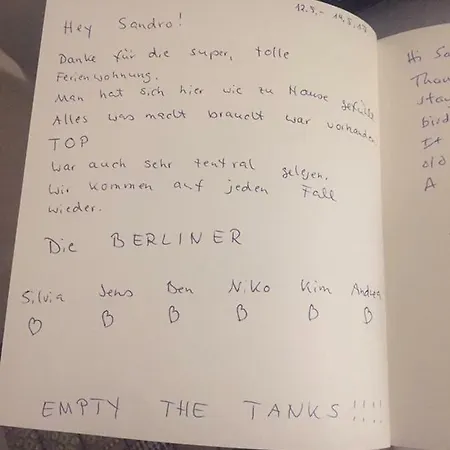 12.5.- 14.5.17
Hey Sandro!
Danke für die super, tolle
Ferienwohnung.
Man hat sich hier wie zu Hause gefühlt
Alles was macht braucht war vorhanden
TOP
War auch sehr zentral gelegen.
Wir kommen auf jeden Fall
wieder.
Die BERLINER
Silvia Jens Ben Niko Kim Andrea
EMPTY THE TANKS !!!!
Hi
Than
stay
old
A